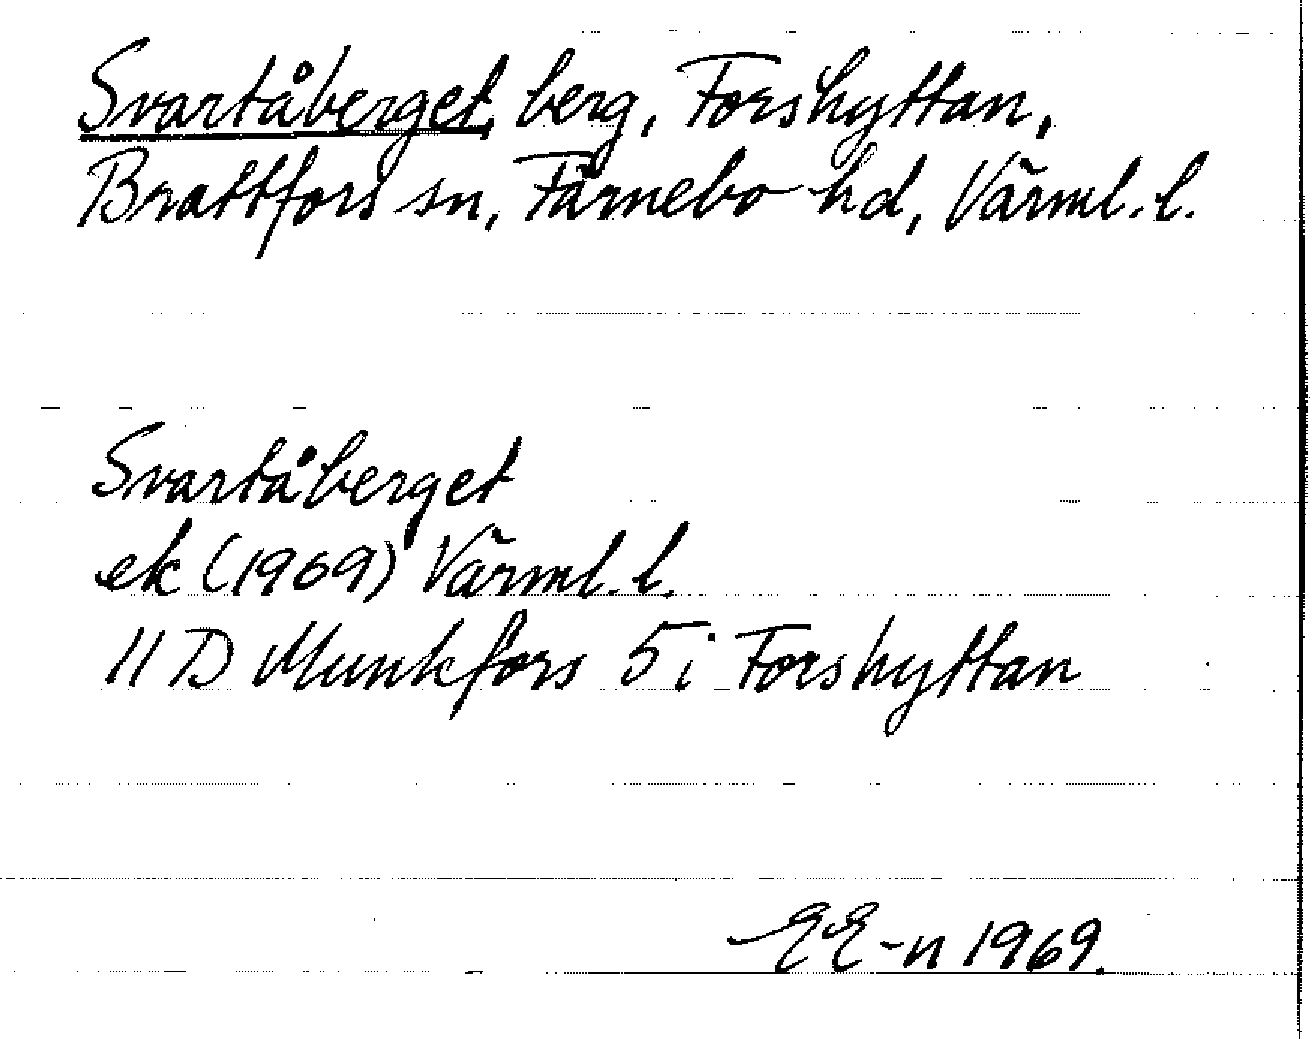 Svartåberget, berg, Forshyttan,
Brattfors sn, Färnebo hd, Värml. l.
Svartåberget
ek (1969) Värml. l.
11 D Munkfors 5 i Forshyttan
EE-n 1969.